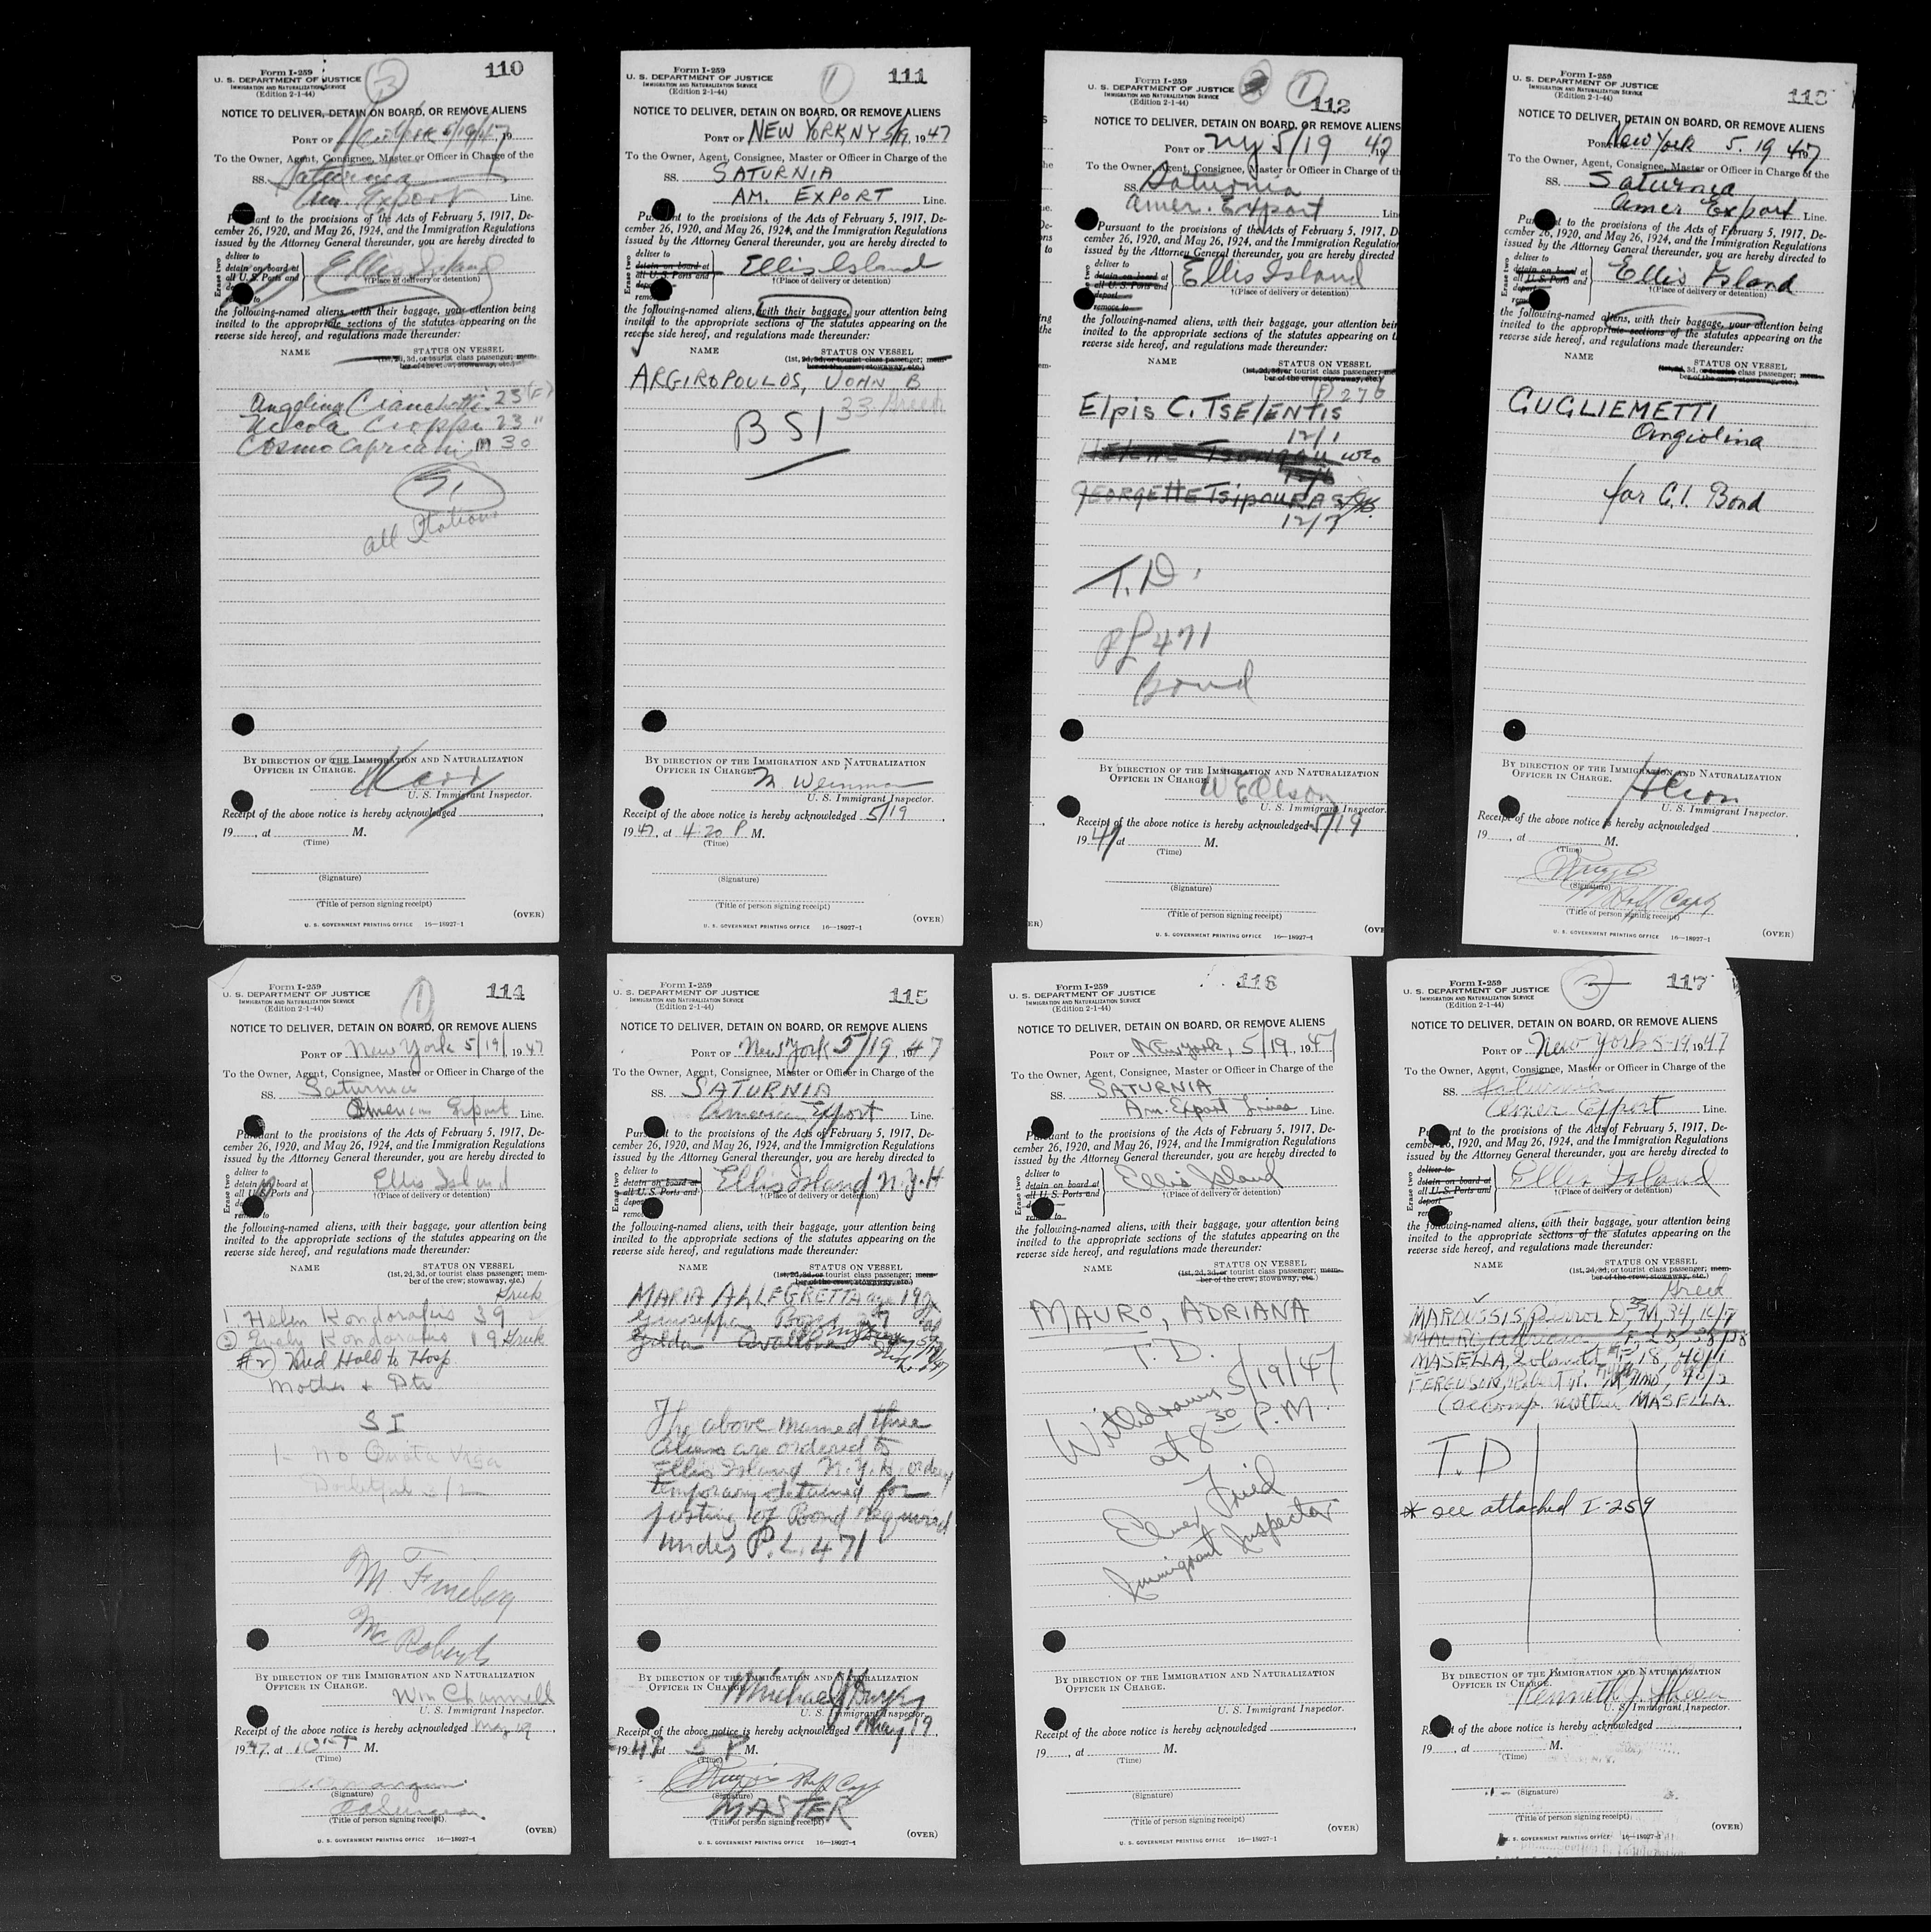 Form I-259
U. S. DEPARTMENT OF JUSTICE
IMMIGRATION AND NATURALIZATION SERVICE
(Edition 2-1-44)
3
110
NOTICE TO DELIVER, DETAIN ON BOARD, OR REMOVE ALIENS
PORT OF New York 5/19/47 19
To the Owner, Agent, Consignee, Master or Officer in Charge of the
SS. Saturnia
Am. Export Line.
Pursuant to the provisions of the Acts of February 5, 1917, De-
cember 26, 1920, and May 26, 1924, and the Immigration Regulations
issued by the Attorney General thereunder, you are hereby directed to
Erase two
deliver to
detain on board at
all U. S. Ports and
Ellis Island
†(Place of delivery or detention)
the following-named aliens, with their baggage, your attention being
invited to the appropriate sections of the statutes appearing on the
reverse side hereof, and regulations made thereunder:
NAME STATUS ON VESSEL
(1st, 2d, 3d, or tourist class passenger; mem-
ber of the crew; stowaway, etc.)
Angelina Cianchetti 23 (F)
Nicola Cioppi 23 "
Cosmo Capriani M 30
SI
all Italians
BY DIRECTION OF THE IMMIGRATION AND NATURALIZATION
OFFICER IN CHARGE.
U. S. Immigrant Inspector.
Receipt of the above notice is hereby acknowledged
19, at M.
(Time)
(Signature)
(Title of person signing receipt)
(OVER)
U. S. GOVERNMENT PRINTING OFFICE 16—18927-1
Form I-259
U. S. DEPARTMENT OF JUSTICE
IMMIGRATION AND NATURALIZATION SERVICE
(Edition 2-1-44)
1
111
NOTICE TO DELIVER, DETAIN ON BOARD, OR REMOVE ALIENS
PORT OF NEW YORK, NY 5/19, 1947
To the Owner, Agent, Consignee, Master or Officer in Charge of the
SS. SATURNIA
AM. EXPORT Line.
Pursuant to the provisions of the Acts of February 5, 1917, De-
cember 26, 1920, and May 26, 1924, and the Immigration Regulations
issued by the Attorney General thereunder, you are hereby directed to
Erase two
deliver to
detain on board at
all U. S. Ports and
depart
remove
Ellis Island
†(Place of delivery or detention)
the following-named aliens, with their baggage, your attention being
invited to the appropriate sections of the statutes appearing on the
reverse side hereof, and regulations made thereunder:
NAME STATUS ON VESSEL
(1st, 2d, 3d, or tourist class passenger; mem-
ber of the crew, stowaway, etc.)
ARGIROPOULOS, JOHN B
33 Greek
BSI
BY DIRECTION OF THE IMMIGRATION AND NATURALIZATION
OFFICER IN CHARGE.
M. Weinman
U. S. Immigrant Inspector.
Receipt of the above notice is hereby acknowledged 5/19,
1947, at 4:20 P. M.
(Time)
(Signature)
(Title of person signing receipt)
(OVER)
U. S. GOVERNMENT PRINTING OFFICE 16—18927-1
Form I-259
U. S. DEPARTMENT OF JUSTICE
IMMIGRATION AND NATURALIZATION SERVICE
(Edition 2-1-44)
1
112
NOTICE TO DELIVER, DETAIN ON BOARD, OR REMOVE ALIENS
PORT OF NY 5/19 1947
To the Owner, Agent, Consignee, Master or Officer in Charge of th
SS. Saturnia
Amer. Export Lin
Pursuant to the provisions of the Acts of February 5, 1917, D
cember 26, 1920, and May 26, 1924, and the Immigration Regulation
issued by the Attorney General thereunder, you are hereby directed
Erase two
deliver to
detain on board at
all U. S. Ports and
depart
remove to
Ellis Island
†(Place of delivery or detention)
the following-named aliens, with their baggage, your attention bei
invited to the appropriate sections of the statutes appearing on t
reverse side hereof, and regulations made thereunder:
NAME STATUS ON VESSEL
(1st, 2d, 3d, or tourist class passenger; me
ber of the crew; stowaway, etc.)
(F) 27 6
Elpis C. TSELENTIS
12/1
WEO
GEORGETTE TSIPOURAS
12/7
T.D.
PL 471
Bond
BY DIRECTION OF THE IMMIGRATION AND NATURALIZATION
OFFICER IN CHARGE.
W E Olson
U. S. Immigrant Inspector.
Receipt of the above notice is hereby acknowledged 5/19
1947 at M.
(Time)
(Signature)
(Title of person signing receipt)
(OVE
U. S. GOVERNMENT PRINTING OFFICE 16—18927-1
Form I-259
U. S. DEPARTMENT OF JUSTICE
IMMIGRATION AND NATURALIZATION SERVICE
(Edition 2-1-44)
113
NOTICE TO DELIVER, DETAIN ON BOARD, OR REMOVE ALIENS
PORT OF New York 5. 19 1947
To the Owner, Agent, Consignee, Master or Officer in Charge of the
SS. Saturnia
Amer Export Line.
Pursuant to the provisions of the Acts of February 5, 1917, De-
cember 26, 1920, and May 26, 1924, and the Immigration Regulations
issued by the Attorney General thereunder, you are hereby directed to
Erase two
deliver to
detain on board at
all U. S. Ports and
depart
remove
Ellis Island
†(Place of delivery or detention)
the following-named aliens, with their baggage, your attention being
invited to the appropriate sections of the statutes appearing on the
reverse side hereof, and regulations made thereunder:
NAME STATUS ON VESSEL
(1st, 2d, 3d, or tourist class passenger; mem-
ber of the crew; stowaway, etc.)
GUGLIEMETTI
Angiolina
for G.I. Bond
BY DIRECTION OF THE IMMIGRATION AND NATURALIZATION
OFFICER IN CHARGE.
U. S. Immigrant Inspector.
Receipt of the above notice is hereby acknowledged
19, at M.
(Time)
(Signature)
Staff Capt
(Title of person signing receipt)
(OVER)
U. S. GOVERNMENT PRINTING OFFICE 16—18927-1
Form I-259
U. S. DEPARTMENT OF JUSTICE
IMMIGRATION AND NATURALIZATION SERVICE
(Edition 2-1-44)
1
114
NOTICE TO DELIVER, DETAIN ON BOARD, OR REMOVE ALIENS
PORT OF New York 5/19/ 1947
To the Owner, Agent, Consignee, Master or Officer in Charge of the
SS. Saturnia
American Export Line.
Pursuant to the provisions of the Acts of February 5, 1917, De-
cember 26, 1920, and May 26, 1924, and the Immigration Regulations
issued by the Attorney General thereunder, you are hereby directed to
Erase two
deliver to
detain on board at
all U. S. Ports and
remove to
Ellis Island
†(Place of delivery or detention)
the following-named aliens, with their baggage, your attention being
invited to the appropriate sections of the statutes appearing on the
reverse side hereof, and regulations made thereunder:
NAME STATUS ON VESSEL
(1st, 2d, 3d, or tourist class passenger; mem-
ber of the crew; stowaway, etc.)
Greek
1. Helen Kondorafus 39
2 Kondorafus 19 Greek
#2 Med Hold to Hosp.
Mother + Dtr
SI
1- no Quota Visa
M Fineberg
Mc Roberts
BY DIRECTION OF THE IMMIGRATION AND NATURALIZATION
OFFICER IN CHARGE.
Wm Channell
U. S. Immigrant Inspector.
Receipt of the above notice is hereby acknowledged May 19,
1947, at M.
(Time)
(Signature)
(Title of person signing receipt)
(OVER)
U. S. GOVERNMENT PRINTING OFFICE 16—18927-1
Form I-259
U. S. DEPARTMENT OF JUSTICE
IMMIGRATION AND NATURALIZATION SERVICE
(Edition 2-1-44)
115
NOTICE TO DELIVER, DETAIN ON BOARD, OR REMOVE ALIENS
PORT OF New York 5/19 1947
To the Owner, Agent, Consignee, Master or Officer in Charge of the
SS. SATURNIA
American Export Line.
Pursuant to the provisions of the Acts of February 5, 1917, De-
cember 26, 1920, and May 26, 1924, and the Immigration Regulations
issued by the Attorney General thereunder, you are hereby directed to
Erase two
deliver to
detain on board at
all U. S. Ports and
depart
remove
Ellis Island N.Y.H
†(Place of delivery or detention)
the following-named aliens, with their baggage, your attention being
invited to the appropriate sections of the statutes appearing on the
reverse side hereof, and regulations made thereunder:
NAME STATUS ON VESSEL
(1st, 2d, 3d, or tourist class passenger; mem-
ber of the crew; stowaway, etc.)
MARIA ALLEGRETTA age 19
Giuseppa
Gilda Avallone
The above named three
aliens are ordered to
Ellis Island N.Y.H. order
temporary detained for
posting of Bond required
under P.L. 471
BY DIRECTION OF THE IMMIGRATION AND NATURALIZATION
OFFICER IN CHARGE.
Michael J
U. S. Immigrant Inspector.
Receipt of the above notice is hereby acknowledged May 19,
1947 at 5 P M.
(Time)
Staff Capt
(Signature)
MASTER
(Title of person signing receipt)
(OVER)
U. S. GOVERNMENT PRINTING OFFICE 16—18927-1
Form I-259
U. S. DEPARTMENT OF JUSTICE
IMMIGRATION AND NATURALIZATION SERVICE
(Edition 2-1-44)
116
NOTICE TO DELIVER, DETAIN ON BOARD, OR REMOVE ALIENS
PORT OF New York, 5/19, 1947
To the Owner, Agent, Consignee, Master or Officer in Charge of the
SS. SATURNIA
Am. Export Lines Line.
Pursuant to the provisions of the Acts of February 5, 1917, De-
cember 26, 1920, and May 26, 1924, and the Immigration Regulations
issued by the Attorney General thereunder, you are hereby directed to
Erase two
deliver to
detain on board at
all U. S. Ports and
remove to
Ellis Island
†(Place of delivery or detention)
the following-named aliens, with their baggage, your attention being
invited to the appropriate sections of the statutes appearing on the
reverse side hereof, and regulations made thereunder:
NAME STATUS ON VESSEL
(1st, 2d, 3d, or tourist class passenger; mem-
ber of the crew; stowaway, etc.)
MAURO, ADRIANA
T.D.
Withdrawn 5/19/47
at 8 30 P.M.
Elmer Fried
Immigrant Inspector
BY DIRECTION OF THE IMMIGRATION AND NATURALIZATION
OFFICER IN CHARGE.
U. S. Immigrant Inspector.
Receipt of the above notice is hereby acknowledged
19, at M.
(Time)
(Signature)
(Title of person signing receipt)
(OVER)
U. S. GOVERNMENT PRINTING OFFICE 16—18927-1
Form I-259
U. S. DEPARTMENT OF JUSTICE
IMMIGRATION AND NATURALIZATION SERVICE
(Edition 2-1-44)
3
117
NOTICE TO DELIVER, DETAIN ON BOARD, OR REMOVE ALIENS
PORT OF New York 5-19, 1947
To the Owner, Agent, Consignee, Master or Officer in Charge of the
SS. Saturnia
Amer Export Line.
Pursuant to the provisions of the Acts of February 5, 1917, De-
cember 26, 1920, and May 26, 1924, and the Immigration Regulations
issued by the Attorney General thereunder, you are hereby directed to
Erase two
deliver to
detain on board at
all U. S. Ports and
depart
remove
Ellis Island
†(Place of delivery or detention)
the following-named aliens, with their baggage, your attention being
invited to the appropriate sections of the statutes appearing on the
reverse side hereof, and regulations made thereunder:
NAME STATUS ON VESSEL
(1st, 2d, 3d, or tourist class passenger; mem-
ber of the crew; stowaway, etc.)
Greek
MAROUSSIS, D, M, 34, 16/17
MAURO, Adriana F 25
MASELLA, Iolanda F 18, 40/1
FERGUSON, Robert Jr. M, 40/2
(accomp. mother MASELLA.
T.D
* see attached I-259
BY DIRECTION OF THE IMMIGRATION AND NATURALIZATION
OFFICER IN CHARGE.
Kenneth J.
U. S. Immigrant Inspector.
Receipt of the above notice is hereby acknowledged
19, at M.
(Time)
(Signature)
(Title of person signing receipt)
(OVER)
U. S. GOVERNMENT PRINTING OFFICE 16—18927-1